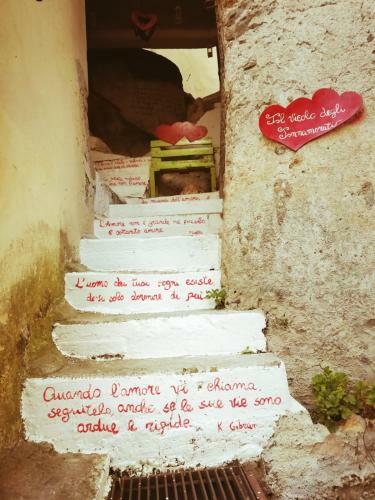 Il vicolo degli
Innamorati
L'amore non è grande né piccolo
è soltanto amore
L'uomo dei tuoi sogni esiste
devi solo dormire di più
Quando l'amore vi chiama,
seguitelo, anche se le sue vie sono
ardue e ripide. K Gibran